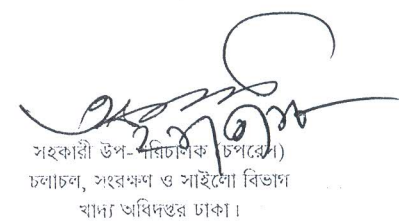 সহকারী উপ-পরিচালক (চপরেস)
চলাচল, সংরক্ষণ ও সাইলো বিভাগ
খাদ্য অধিদপ্তর ঢাকা।